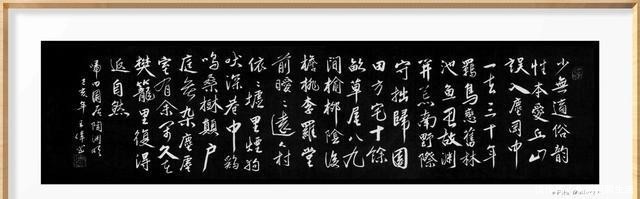 少無適俗韵
性本愛丘山
誤入塵网中
一去三十年
羈鳥戀舊林
池魚思故淵
開荒南野際
守拙歸園
田方宅十餘
畝草屋八九
間榆柳陰後
檐桃李羅堂
前曖〻遠人村
依〻墟里煙狗
吠深巷中鷄
鳴桑樹顛户
庭無雜塵虛
室有余閑久在
樊籠里復得
返自然
歸田園居陶渊明
己亥年